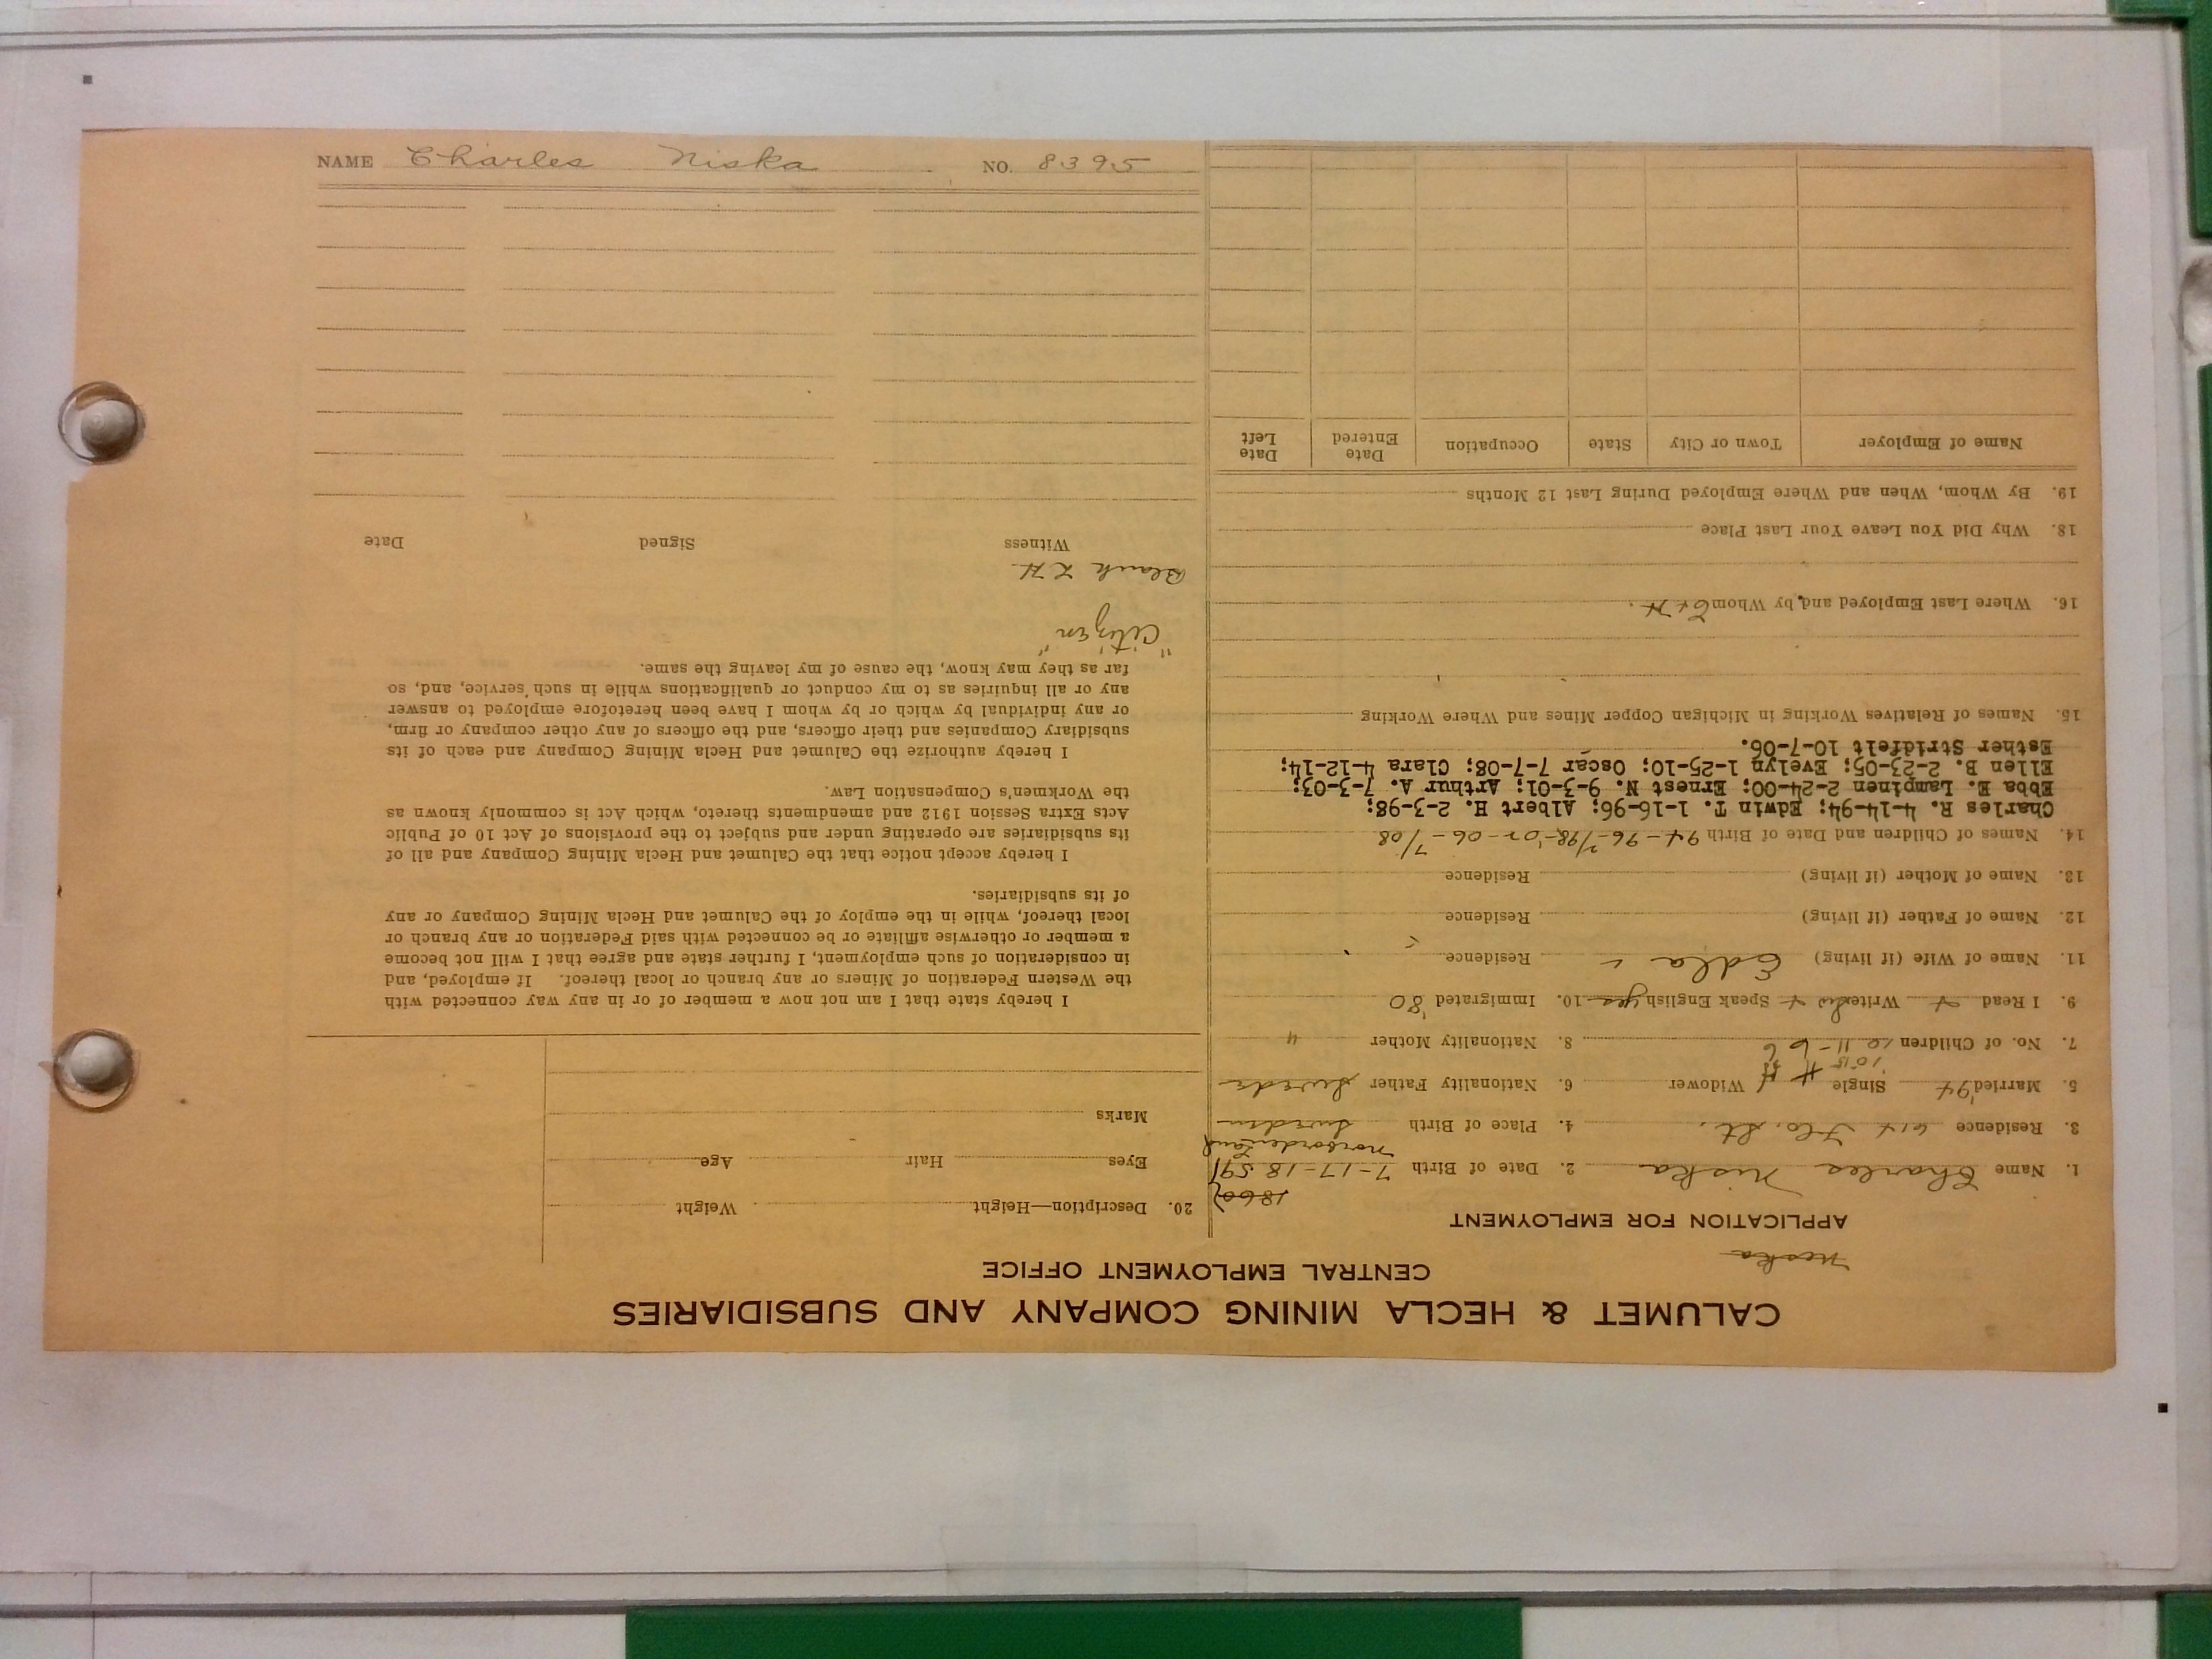 CALUMET & HECLA MINING COMPANY AND SUBSIDIARIES
CENTRAL EMPLOYMENT OFFICE
Niska
APPLICATION FOR EMPLOYMENT
1860
1. Name Charles Niska 2. Date of Birth 7-17-1859
3. Residence Flo. St. 4. Place of Birth Sweden
5. Married '94 Single Widower 6. Nationality Father Swede
7. No. of Children 8. Nationality Mother "
9. I Read + Write Speak English yes 10. Immigrated '80
11. Name of Wife (if living) Edla Residence
12. Name of Father (if living) Residence
13. Name of Mother (if living) Residence
14. Names of Children and Date of Birth 94-96-
Charles R. 4-14-94; Edwin T. 1-16-96; Albert H. 2-3-98;
Ebba E. Lampinen 2-24-00; Ernest N. 9-3-01; Arthur A. 7-3-03;
Ellen B. 2-23-05; Evelyn 1-25-10; Oscar 7-7-08; Clara 4-12-14;
Esther Stridfelt 10-7-06.
15. Names of Relatives Working in Michigan Copper Mines and Where Working
16. Where Last Employed and by Whom C + H.
18. Why Did You Leave Your Last Place
19. By Whom, When and Where Employed During Last 12 Months
Name of Employer Town or City State Occupation Date Entered Date Left
20. Description—Height Weight
Eyes Hair Age
Marks
I hereby state that I am not now a member of or in any way connected with
the Western Federation of Miners or any branch or local thereof. If employed, and
in consideration of such employment, I further state and agree that I will not become
a member or otherwise affiliate or be connected with said Federation or any branch or
local thereof, while in the employ of the Calumet and Hecla Mining Company or any
of its subsidiaries.
I hereby accept notice that the Calumet and Hecla Mining Company and all of
its subsidiaries are operating under and subject to the provisions of Act 10 of Public
Acts Extra Session 1912 and amendments thereto, which Act is commonly known as
the Workmen's Compensation Law.
I hereby authorize the Calumet and Hecla Mining Company and each of its
subsidiary Companies and their officers, and the officers of any other company or firm,
or any individual by which or by whom I have been heretofore employed to answer
any or all inquiries as to my conduct or qualifications while in such service, and, so
far as they may know, the cause of my leaving the same.
"Citizen"
Witness Signed Date
NAME Charles Niska NO. 8395